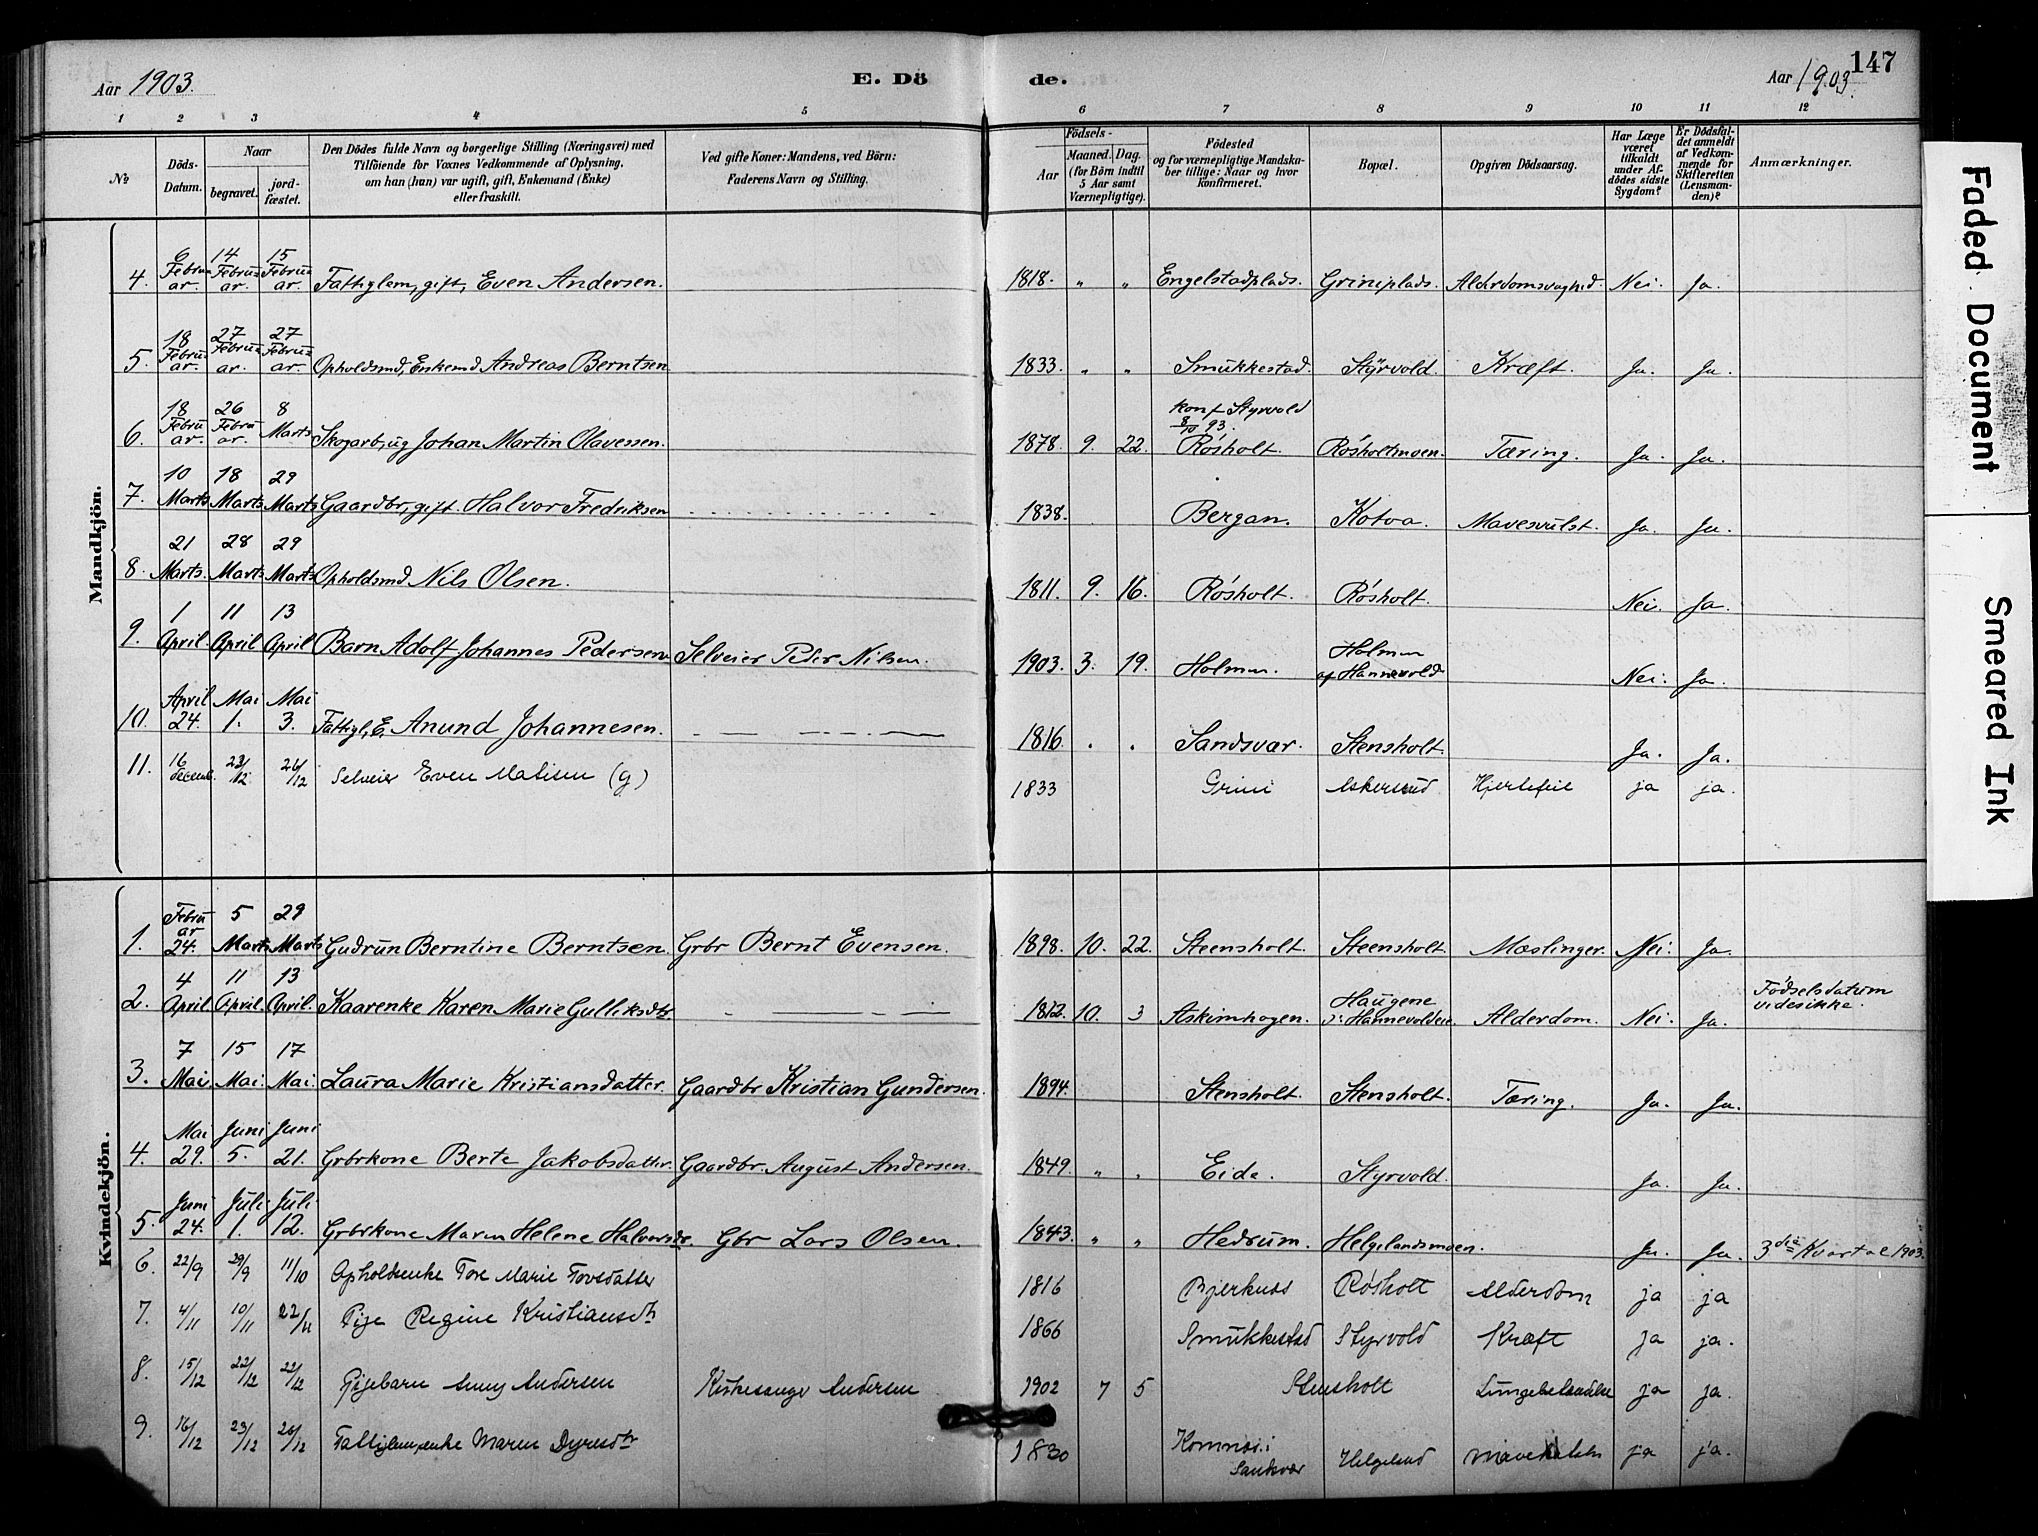 Aar 1903.
E. Dö
de.
Aar 1903.
147
1 2 3 4 5 6 7 8 9 10 11 12
No
Döds-Datum.
Naar
begravet.
jordfæstet.
Den Dödes fulde Navn og borgerlige Stilling (Næringsvei) med
Tilföiende for Voxnes Vedkommende af Oplysning,
om han (hun) var ugift, gift, Enkemand (Enke)
eller fraskilt.
Ved gifte Koner: Mandens, ved Börn:
Faderens Navn og Stilling.
Födsels-
Aar
Maaned. Dag.
(for Börn indtil
5 Aar samt
Værnepligtige).
Födested
og for værnepligtige Mandskaber tillige: Naar og hvor
konfirmeret.
Bopæl.
Opgiven Dödsaarsag.
Har Læge
været
tilkaldt
under Afdödes sidste
Sygdom?
Er Dödsfaldet anmeldt
af Vedkommende for
Skifteretten
(Lensmanden)?
Anmærkninger.
Mandkjön.
4. 6 Februar. 14 Februar. 15 Februar. Fattiglem, gift, Even Andersen. 1818. " " Engelstadplads. Griniplads. Alderdomsvaghed. Nei. Ja.
5. 18 Februar. 27 Februar. 27 Februar. Opholdsmd, Enkemd Andreas Berntsen 1833. " " Smukkestad. Styrvold. Kræft. Ja. Ja.
6. 18 Februar. 26 Februar. 8 Marts Skogarb, ug Johan Martin Olavessen. 1878. 9. 22. konf Styrvold 8/10 93. Røsholt. Røsholtmoen. Tæring. Ja. Ja.
7. 10 Marts 18 Marts 29 Marts Gaardbr, gift. Halvor Fredriksen 1838. Bergan. Kotva. Mavesvulst. Ja. Ja.
8. 21 Marts. 28 Marts 29 Marts Opholdsmd Nils Olsen. 1811. 9. 16. Røsholt. Røsholt. Nei. Ja.
9. 1 April. 11 April 13 April Barn Adolf Johannes Pedersen Selveier Peder Nilsen. 1903. 3. 19. Holmen. Holmen af Hannevold Nei. Ja.
10. April 24. Mai 1. Mai 3. Fattigl, E. Anund Johannesen. 1816. " " Sandsvær. Stensholt. Ja. Ja.
11. 16 decemb. 23/12 26/12 Selveier Even Matisen (g) 1833 Grini Askerud Hjertefeil ja ja.
Kvindekjön.
1. Februar 24. 5 Marts 29 Marts Gudrun Berntine Berntsen. Grbr Bernt Evensen. 1898. 10. 22. Steensholt. Steensholt. Mæslinger. Nei. Ja.
2. 4 April 11 April. 13 April. Kaarenke Karen Marie Gulliksdtr. 1812. 10. 3 Askimhagen. Haugene Hannevoldeie. Alderdom. Nei. Ja. Fødselsdatum vides ikke.
3. 7 Mai. 15 Mai. 17 Mai. Laura Marie Kristiansdatter. Gaardbr Kristian Gundersen. 1894. Stensholt. Stensholt. Tæring. Ja. Ja.
4. Mai 29. Juni 5. Juni 21. Grbrkone Berte Jakobsdatter. Gaardbr. August Andersen. 1849. " " Eida. Styrvold. Ja. Ja.
5. Juni 24. Juli 1. Juli 12. Grbrkone Maren Helene Halvorsdr. Gbr Lars Olsen. 1843. " " Hedrum. Helgelandsmoen. Ja. Ja. 3die Kvartal 1903.
6. 22/9 29/9 11/10 Opholdsenke Tore Marie Torsdatter 1816 Bjerknes Røsholt Alderdom ja ja
7. 4/11 10/11 22/11 Pige Regine Kristiansdtr 1866 Smukkestad Styrvold Kræft ja ja.
8. 15/12 22/12 22/12 Pigebarn Andersen Kirkesanger Andersen 1902 7 5 Stensholt Lungebetændelse ja ja.
9. 16/12 23/12 26/12 Fattiglem, enke Maren Dyresdtr 1830 Komnes i Sandsvær Helgeland Mavekatarh ja ja.
Faded Document
Smeared Ink